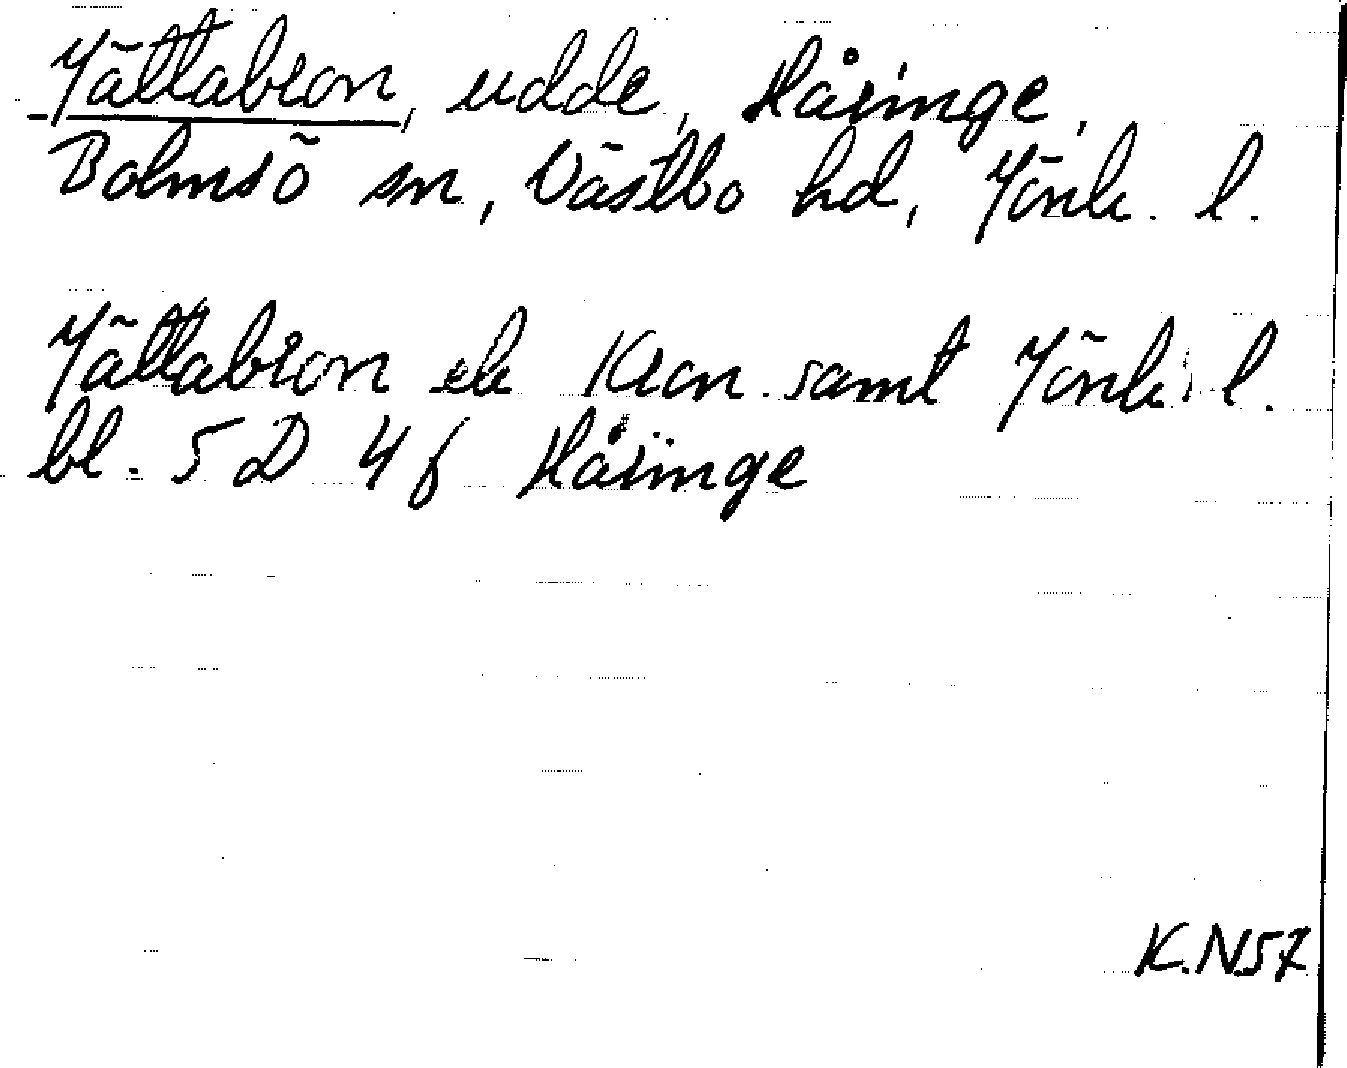 Jättabron, udde, Håringe,
Bolmsö sn, Västbo hd, Jönk. l.
Jättabron ek Kron. samt Jönk. l.
bl. 5D 4f Håringe
K.N57